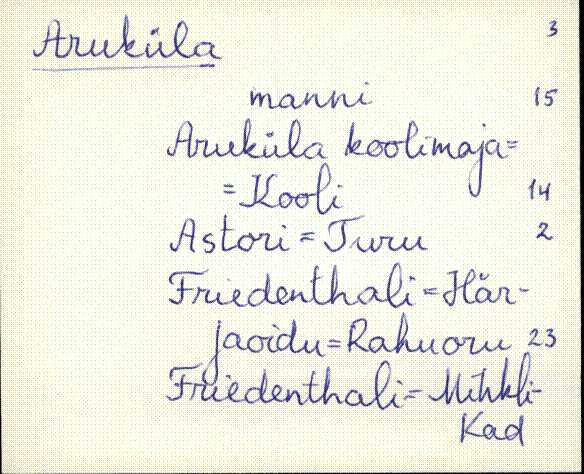 Aruküla 3
manni 15
Aruküla koolimaja=
=Kooli 14
Astori=Turu 2
Friedenthali=Här-
jaoidu=Rahuoru 23
Friedenthali=Mihkli-
Kad